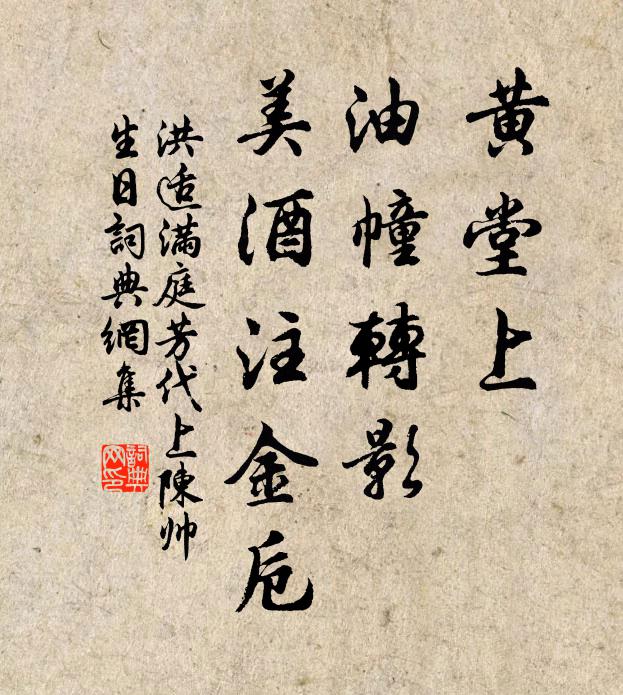 黄堂上
油幢轉影
美酒注金卮
洪适滿庭芳代上陳帅
生日詞典網集
詞典网印